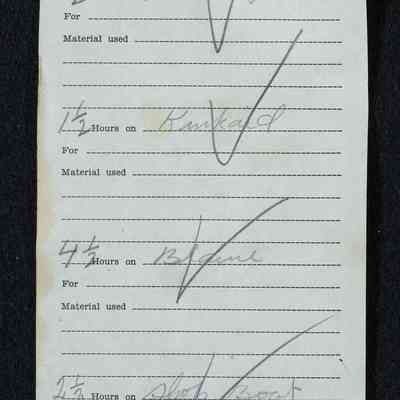 For
Material used
1 1/2 Hours on Kinkaid
For
Material used
4 1/2 Hours on Blaine
For
Material used
2 1/2 Hours on Shop Boat